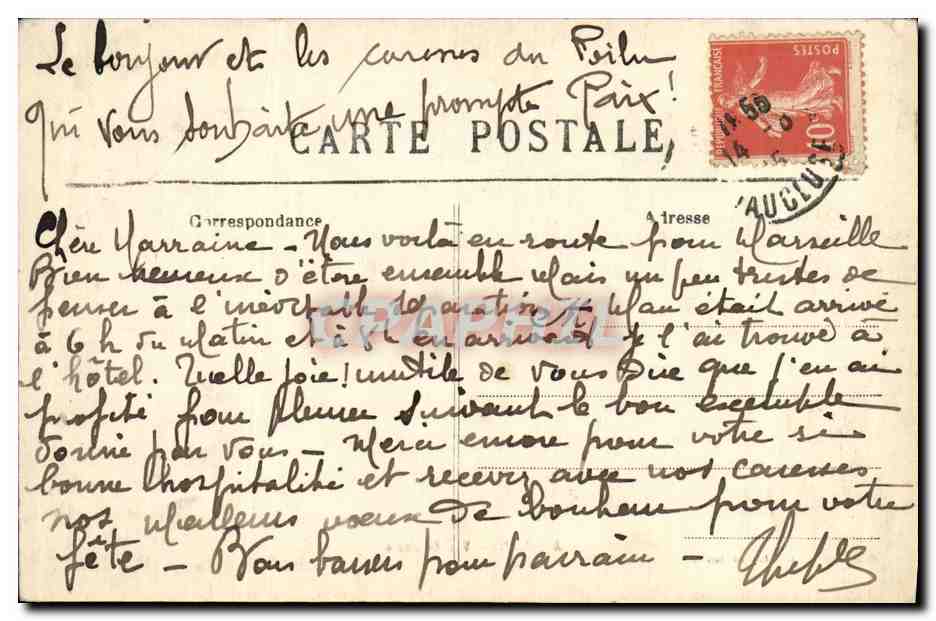 Le bonjour et les caresses du Poilu
qui vous souhaite une prompte Paix!
CARTE POSTALE
RÉPUBLIQUE FRANÇAISE
POSTES
10
VAUCLUSE
Correspondance
Adresse
Chère Marraine - Nous voilà en route pour Marseille
Bien heureux d'être ensemble Mais un peu tristes de
penser à l'inévitable séparation. Man était arrivé
à 6 h du Matin et à 8h en arrivant je l'ai trouvé à
l'hôtel. Quelle joie! inutile de vous dire que j'en ai
profité pour pleurer suivant le bon exemple
donné par vous - Merci encore pour votre si
bonne hospitalité et recevez avec nos caresses
nos meilleurs voeux de bonheur pour votre
fête - Bons baisers pour parrain -
CPAPHIL